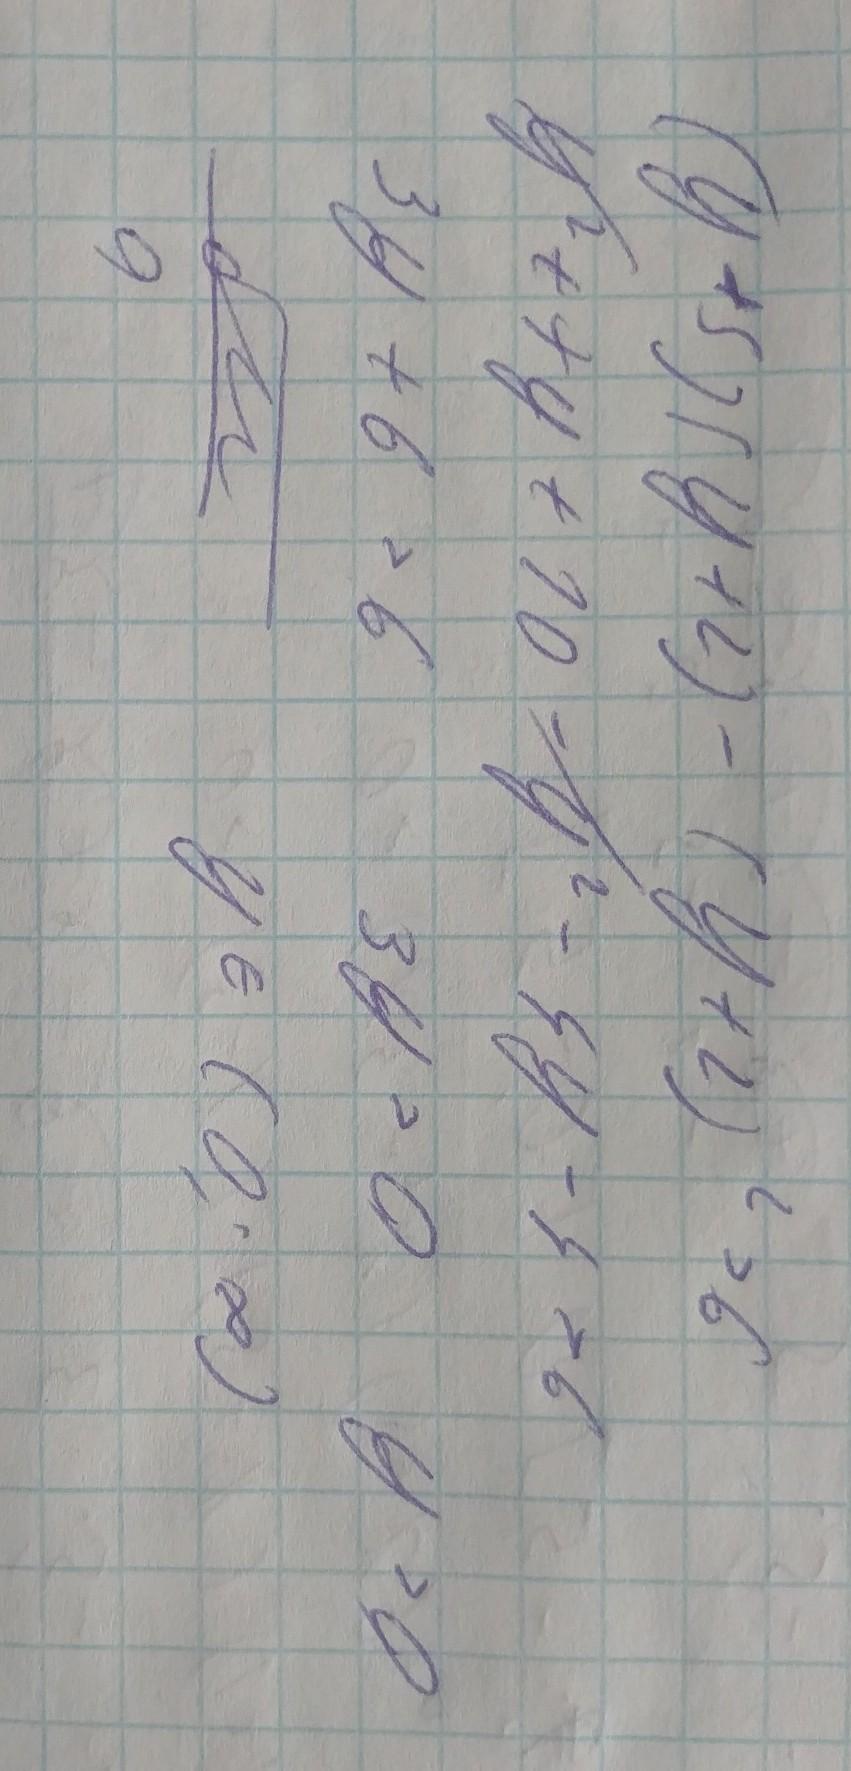 (y+5)(y+2)-(y+2)²=6
y²+7y+10-y²-4y-4=6
3y+6=6 3y=0 y=0
0 y∈(0;∞)